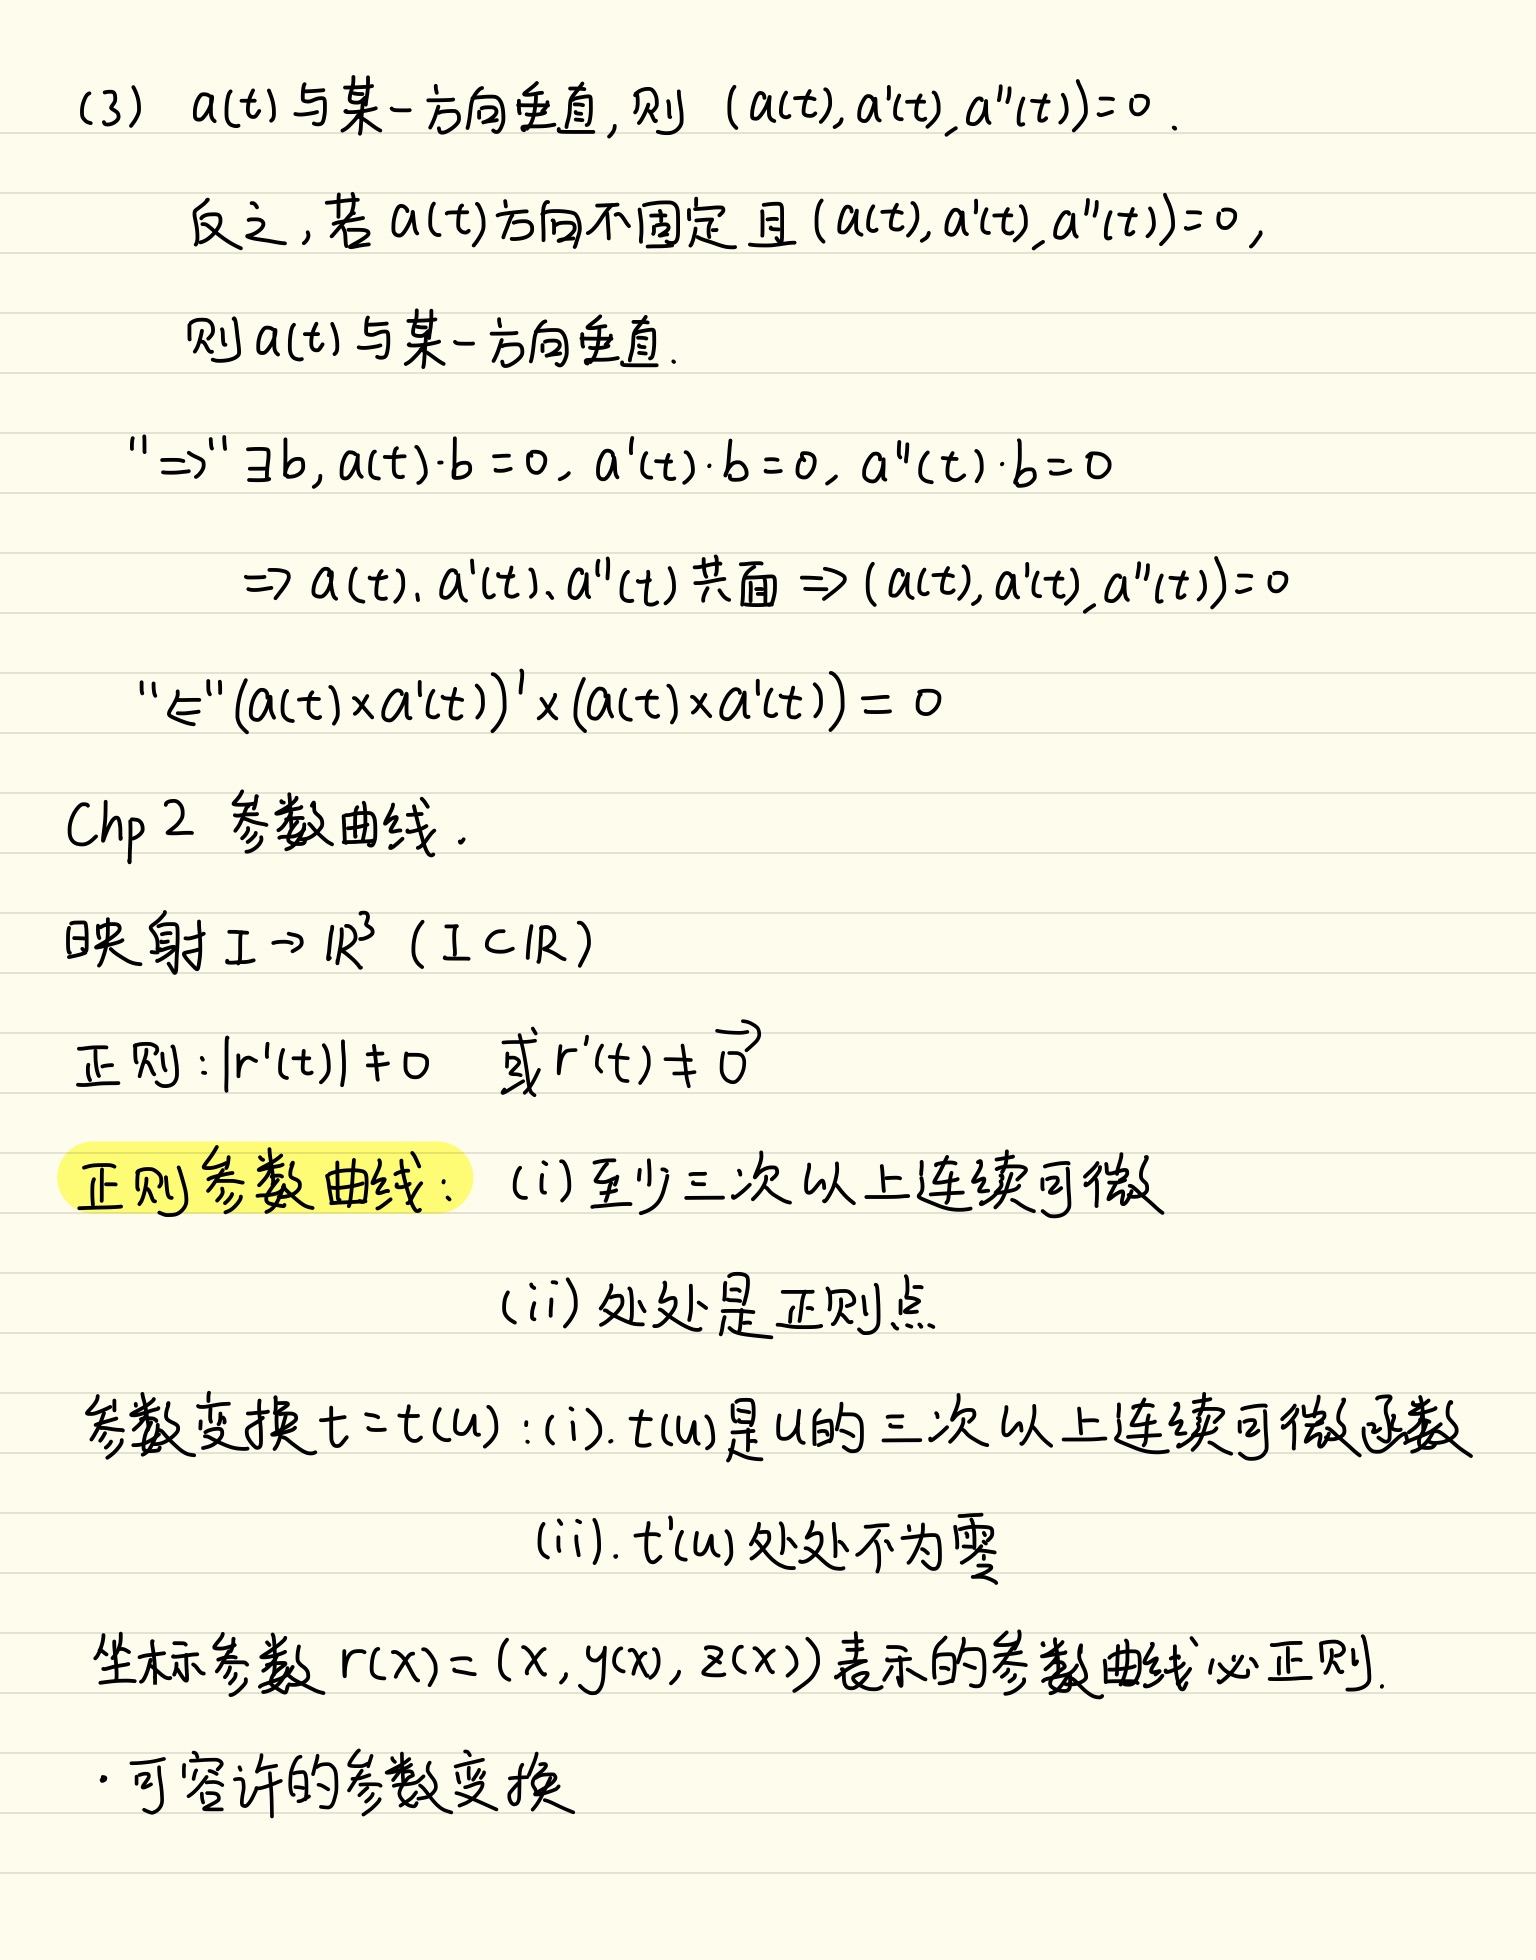 (3) a(t)与某一方向垂直,则 (a(t), a'(t), a''(t))=0.
反之,若a(t)方向不固定且(a(t), a'(t), a''(t))=0,
则a(t)与某一方向垂直.
"⇒" ∃b, a(t)·b=0, a'(t)·b=0, a''(t)·b=0
⇒ a(t)、a'(t)、a''(t)共面 ⇒ (a(t), a'(t), a''(t))=0
"⇐" (a(t)×a'(t))'×(a(t)×a'(t))=0
Chp 2 参数曲线.
映射 I→ℝ³ (I⊂ℝ)
正则:|r'(t)|≠0 或r'(t)≠0⃗
正则参数曲线: (i)至少三次以上连续可微
(ii)处处是正则点
参数变换t=t(u):(i). t(u)是u的三次以上连续可微函数
(ii). t'(u)处处不为零
坐标参数 r(x)=(x, y(x), z(x))表示的参数曲线必正则.
·可容许的参数变换